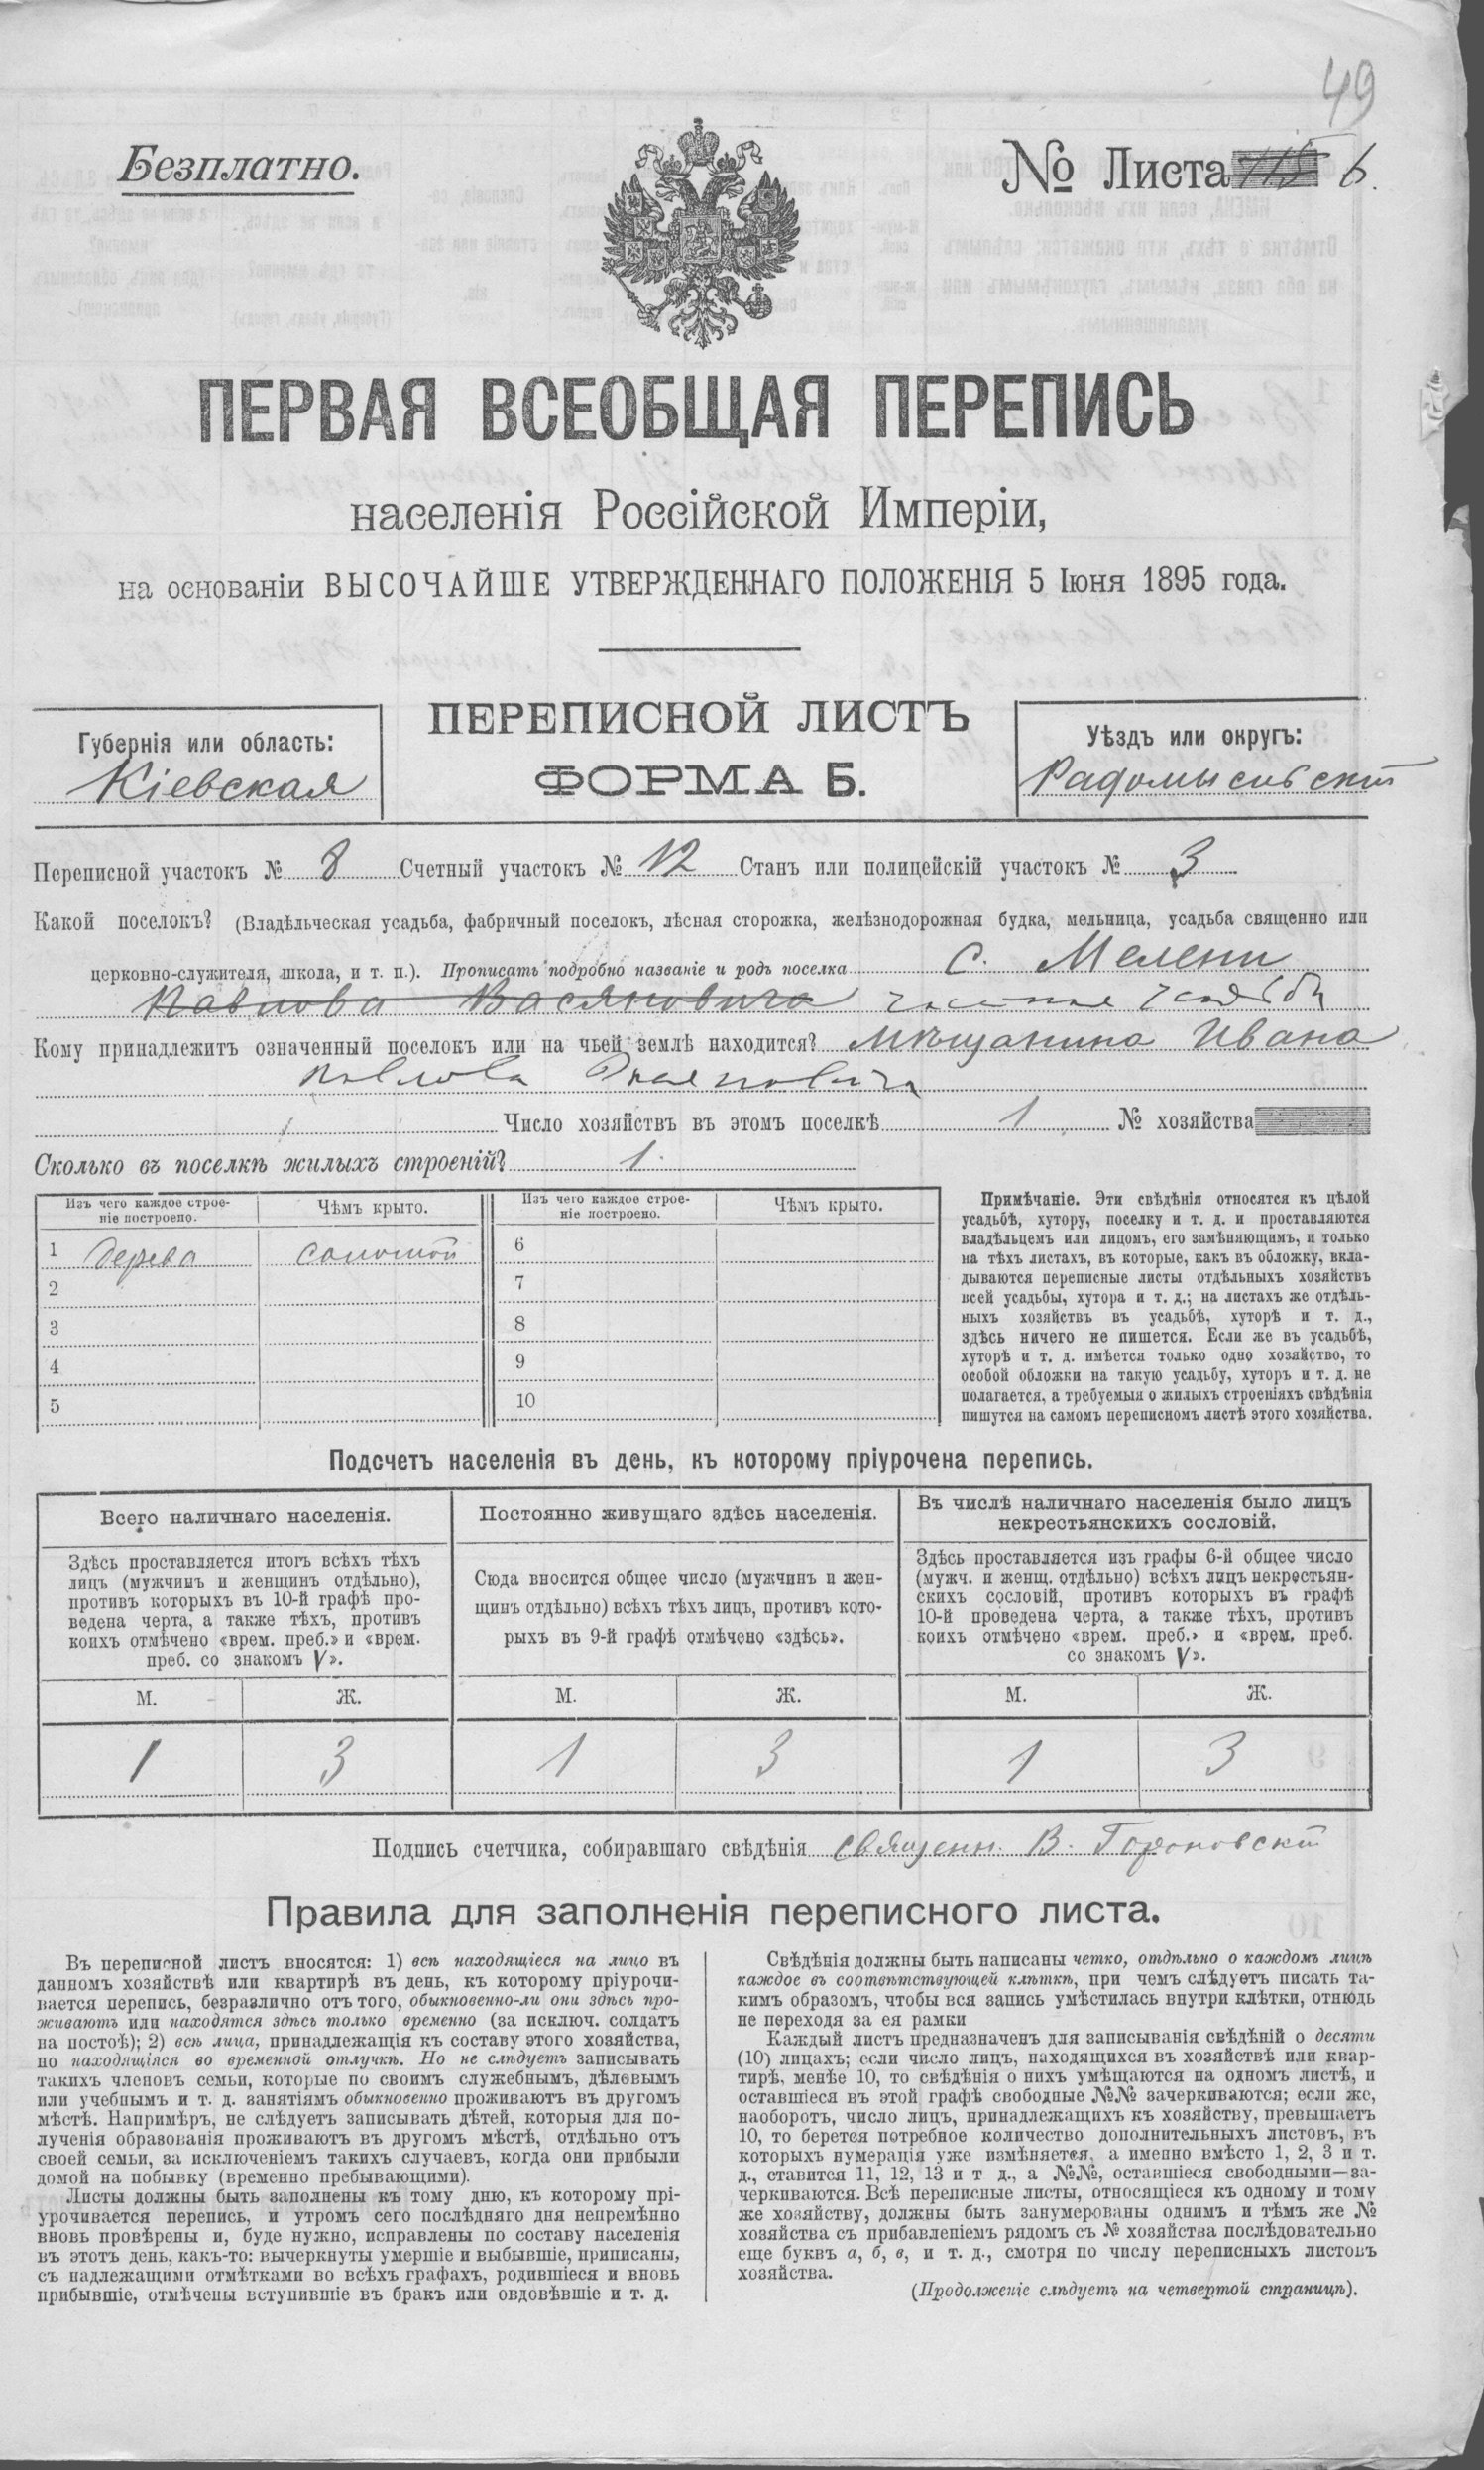 49
Безплатно.
№ Листа 115 6.
ПЕРВАЯ ВСЕОБЩАЯ ПЕРЕПИСЬ
населенія Россійской Имперіи,
на основаніи ВЫСОЧАЙШЕ УТВЕРЖДЕННАГО ПОЛОЖЕНІЯ 5 Іюня 1895 года.
Губернія или область:
Кіевская
ПЕРЕПИСНОЙ ЛИСТЪ
ФОРМА Б.
Уѣздъ или округъ:
Радомысльскій
Переписной участокъ № 8 Счетный участокъ № 12 Станъ или полицейскій участокъ № 3
Какой поселокъ? (Владѣльческая усадьба, фабричный поселокъ, лѣсная сторожка, желѣзнодорожная будка, мельница, усадьба священно или
церковно-служителя, школа, и т. п.). Прописать подробно названіе и родъ поселка с. Мелени
Павлова
Кому принадлежитъ означенный поселокъ или на чьей землѣ находится? Мѣщанина Ивана
Павлова
Число хозяйствъ въ этомъ поселкѣ 1 № хозяйства
Сколько въ поселкѣ жилыхъ строеній? 1.
Изъ чего каждое строе-
ніе построено.
Чѣмъ крыто.
Изъ чего каждое строе-
ніе построено.
Чѣмъ крыто.
1 дерева соломой 6
2 7
3 8
4 9
5 10
Примѣчаніе. Эти свѣдѣнія относятся къ цѣлой
усадьбѣ, хутору, поселку и т. д. и проставляются
владѣльцемъ или лицомъ, его замѣняющимъ, и только
на тѣхъ листахъ, въ которые, какъ въ обложку, вкла-
дываются переписные листы отдѣльныхъ хозяйствъ
всей усадьбы, хутора и т. д.; на листахъ же отдѣль-
ныхъ хозяйствъ въ усадьбѣ, хуторѣ и т. д.,
здѣсь ничего не пишется. Если же въ усадьбѣ,
хуторѣ и т. д. имѣется только одно хозяйство, то
особой обложки на такую усадьбу, хуторъ и т. д. не
полагается, а требуемыя о жилыхъ строеніяхъ свѣдѣнія
пишутся на самомъ переписномъ листѣ этого хозяйства.
Подсчетъ населенія въ день, къ которому пріурочена перепись.
Всего наличнаго населенія.
Здѣсь проставляется итогъ всѣхъ тѣхъ
лицъ (мужчинъ и женщинъ отдѣльно),
противъ которыхъ въ 10-й графѣ про-
ведена черта, а также тѣхъ, противъ
коихъ отмѣчено «врем. преб.» и «врем.
преб. со знакомъ V».
Постоянно живущаго здѣсь населенія.
Сюда вносится общее число (мужчинъ и жен-
щинъ отдѣльно) всѣхъ тѣхъ лицъ, противъ кото-
рыхъ въ 9-й графѣ отмѣчено «здѣсь».
Въ числѣ наличнаго населенія было лицъ
некрестьянскихъ сословій.
Здѣсь проставляется изъ графы 6-й общее число
(мужч. и женщ. отдѣльно) всѣхъ лицъ некрестьян-
скихъ сословій, противъ которыхъ въ графѣ
10-й проведена черта, а также тѣхъ, противъ
коихъ отмѣчено «врем. преб.» и «врем. преб.
со знакомъ V».
М. Ж. М. Ж. М. Ж.
1 3 1 3 1 3
Подпись счетчика, собиравшаго свѣдѣнія Священн. В. Гороновскій
Правила для заполненія переписного листа.
Въ переписной листъ вносятся: 1) всѣ находящіеся на лицо въ
данномъ хозяйствѣ или квартирѣ въ день, къ которому пріурочи-
вается перепись, безразлично отъ того, обыкновенно-ли они здѣсь про-
живаютъ или находятся здѣсь только временно (за исключ. солдатъ
на постоѣ); 2) всѣ лица, принадлежащія къ составу этого хозяйства,
но находящіяся во временной отлучкѣ. Но не слѣдуетъ записывать
такихъ членовъ семьи, которые по своимъ служебнымъ, дѣловымъ
или учебнымъ и т. д. занятіямъ обыкновенно проживаютъ въ другомъ
мѣстѣ. Напримѣръ, не слѣдуетъ записывать дѣтей, которыя для по-
лученія образованія проживаютъ въ другомъ мѣстѣ, отдѣльно отъ
своей семьи, за исключеніемъ такихъ случаевъ, когда они прибыли
домой на побывку (временно пребывающими).
Листы должны быть заполнены къ тому дню, къ которому прі-
урочивается перепись, и утромъ сего послѣдняго дня непремѣнно
вновь провѣрены и, буде нужно, исправлены по составу населенія
въ этотъ день, какъ-то: вычеркнуты умершіе и выбывшіе, приписаны,
съ надлежащими отмѣтками во всѣхъ графахъ, родившіеся и вновь
прибывшіе, отмѣчены вступившіе въ бракъ или овдовѣвшіе и т. д.
Свѣдѣнія должны быть написаны четко, отдѣльно о каждомъ лицѣ
каждое въ соотвѣтствующей клѣткѣ, при чемъ слѣдуетъ писать та-
кимъ образомъ, чтобы вся запись умѣстилась внутри клѣтки, отнюдь
не переходя за ея рамки
Каждый листъ предназначенъ для записыванія свѣдѣній о десяти
(10) лицахъ; если число лицъ, находящихся въ хозяйствѣ или квар-
тирѣ, менѣе 10, то свѣдѣнія о нихъ умѣщаются на одномъ листѣ, и
оставшіеся въ этой графѣ свободные №№ зачеркиваются; если же,
наоборотъ, число лицъ, принадлежащихъ къ хозяйству, превышаетъ
10, то берется потребное количество дополнительныхъ листовъ, въ
которыхъ нумерація уже измѣняется, а именно вмѣсто 1, 2, 3 и т.
д., ставится 11, 12, 13 и т д., а №№, оставшіеся свободными—за-
черкиваются. Всѣ переписные листы, относящіеся къ одному и тому
же хозяйству, должны быть занумерованы однимъ и тѣмъ же №
хозяйства съ прибавленіемъ рядомъ съ № хозяйства послѣдовательно
еще буквъ а, б, в, и т. д., смотря по числу переписныхъ листовъ
хозяйства.
(Продолженіе слѣдуетъ на четвертой страницѣ).